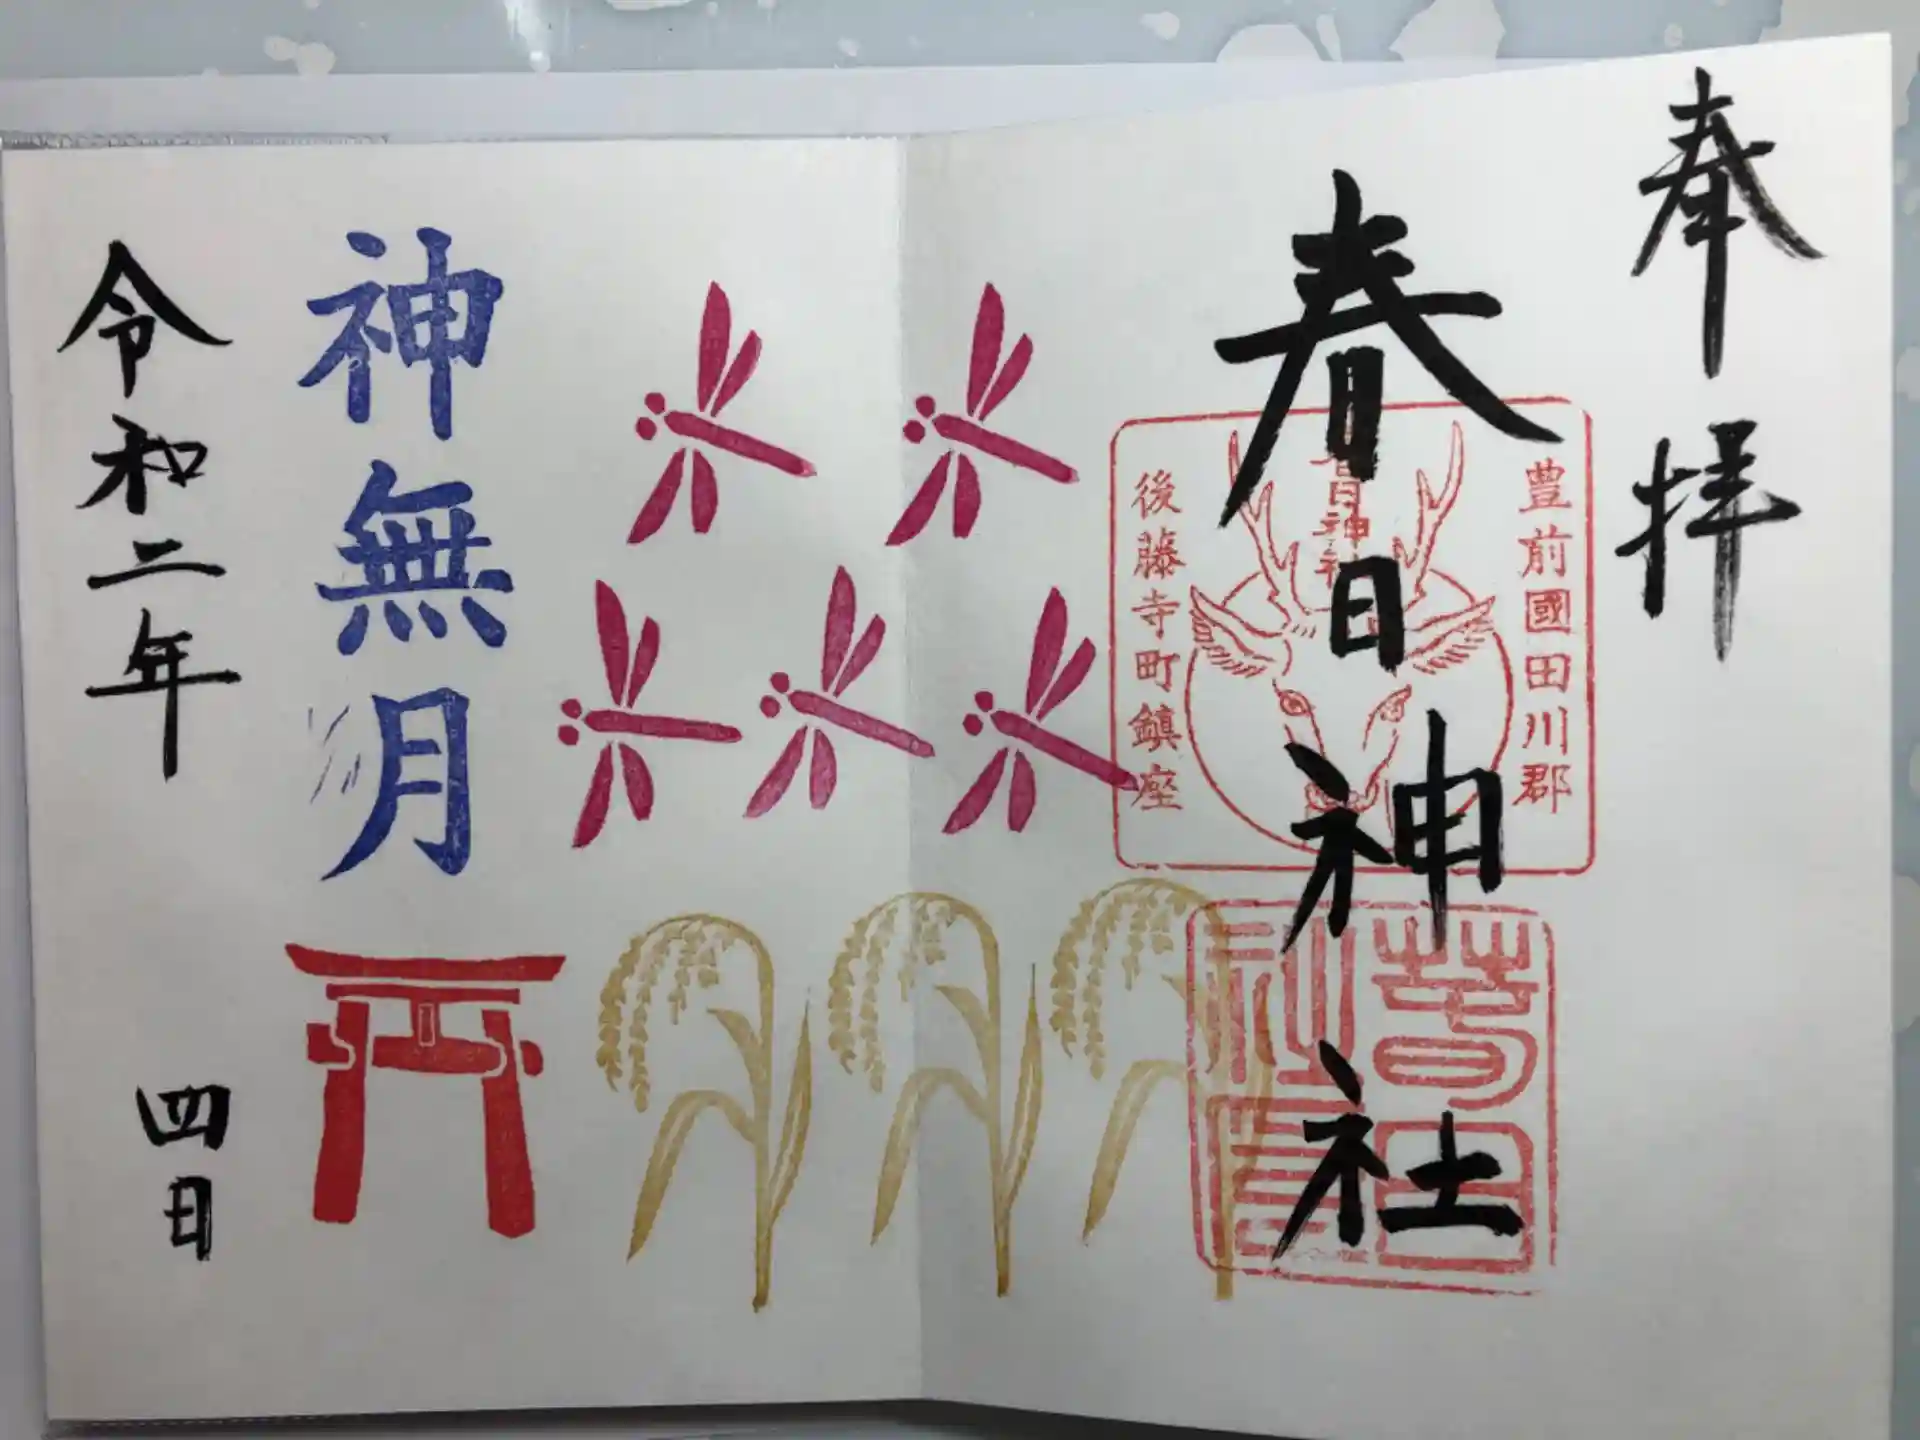 奉拝
豊前國田川郡
春日神社
春日神社
後藤寺町鎮座
春日社印
神無月
令和二年
四日